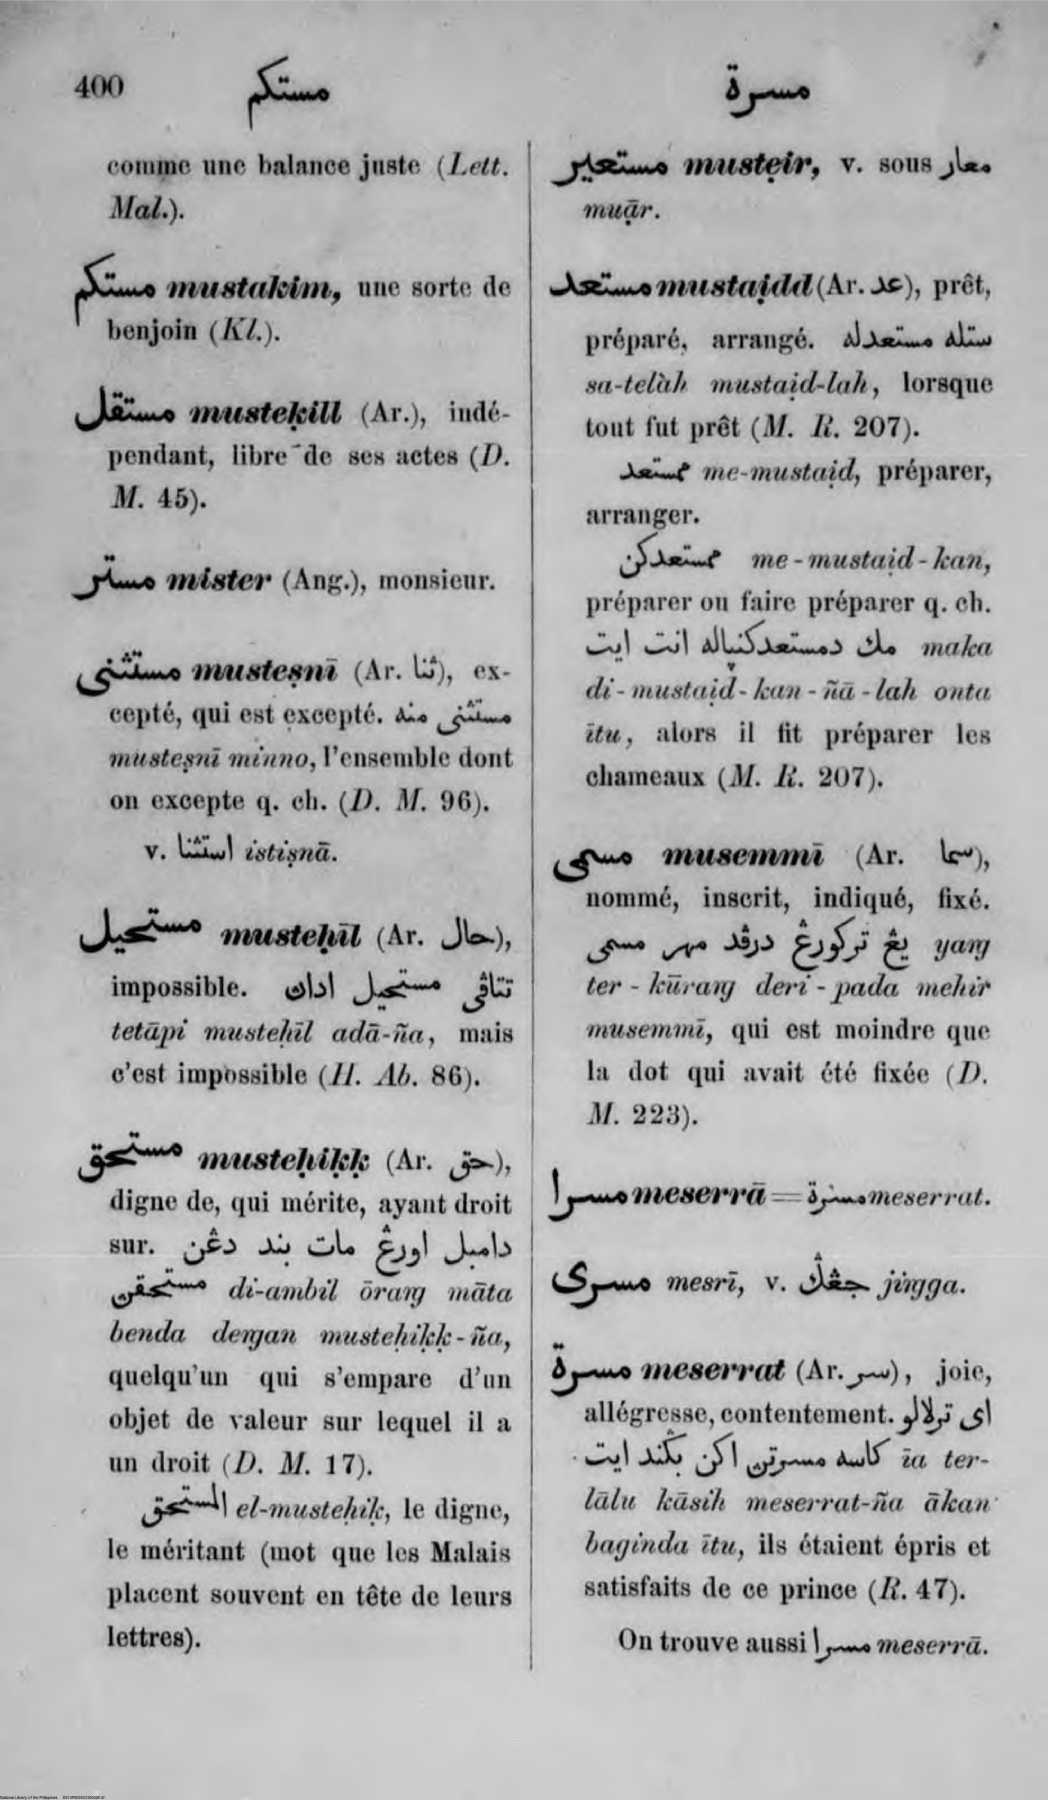 400 مستكم
مسرة
comme une balance juste (Lett.
Mal.).
مستكم mustakim, une sorte de
benjoin (Kl.).
مستقل musteḳill (Ar.), indé-
pendant, libre de ses actes (D.
M. 45).
مستر mister (Ang.), monsieur.
مستثنى musteṣnī (Ar. ثنا), ex-
cepté, qui est excepté. مستثنى منه
musteṣnī minno, l'ensemble dont
on excepte q. ch. (D. M. 96).
v. استثنا istiṣnā.
مستحيل musteḥīl (Ar. حال),
impossible. تتاڤي مستحيل اداڽ
tetāpi musteḥīl adā-ña, mais
c'est impossible (H. Ab. 86).
مستحق musteḥiḳḳ (Ar. حق),
digne de, qui mérite, ayant droit
sur. دامبل اورڠ مات بند دڠن
مستحقن di-ambil ōraŋ māta
benda deŋan musteḥiḳḳ-ña,
quelqu'un qui s'empare d'un
objet de valeur sur lequel il a
un droit (D. M. 17).
المستحق el-musteḥiḳ, le digne,
le méritant (mot que les Malais
placent souvent en tête de leurs
lettres).
مستعير musteạir, v. sous معار
muạ̄r.
مستعد mustaạidd (Ar. عد), prêt,
préparé, arrangé. ستله مستعدله
sa-telàh mustaạid-lah, lorsque
tout fut prêt (M. R. 207).
ممستعد me-mustaạid, préparer,
arranger.
ممستعدكن me-mustaạid-kan,
préparer ou faire préparer q. ch.
مك دمستعدكنڽاله انت ايت maka
di-mustaạid-kan-ñā-lah onta
ītu, alors il fit préparer les
chameaux (M. R. 207).
مسمى musemmī (Ar. سما),
nommé, inscrit, indiqué, fixé.
يڠ تركورڠ درڤد مهر مسمى yaŋ
ter-kūraŋ deri-pada mehir
musemmī, qui est moindre que
la dot qui avait été fixée (D.
M. 223).
مسرا meserrā = مسرة meserrat.
مسرى mesrī, v. جڠڬ jiŋga.
مسرة meserrat (Ar. سر), joie,
allégresse, contentement. اى ترلالو
كاسه مسرتن اكن بݢند ايت īa ter-
lālu kāsih meserrat-ña ākan
baginda ītu, ils étaient épris et
satisfaits de ce prince (R. 47).
On trouve aussi مسرا meserrā.